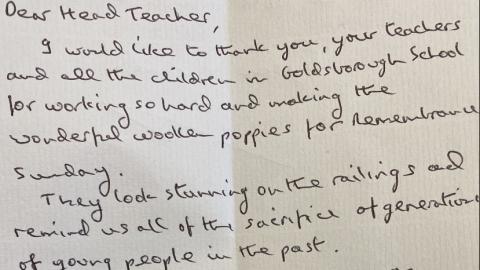 Dear Head Teacher,
I would like to thank you, your teachers
and all the children in Goldsborough School
for working so hard and making the
wonderful woollen poppies for Remembrance
Sunday.
They look stunning on the railings and
remind us all of the sacrifice of generation
of young people in the past.